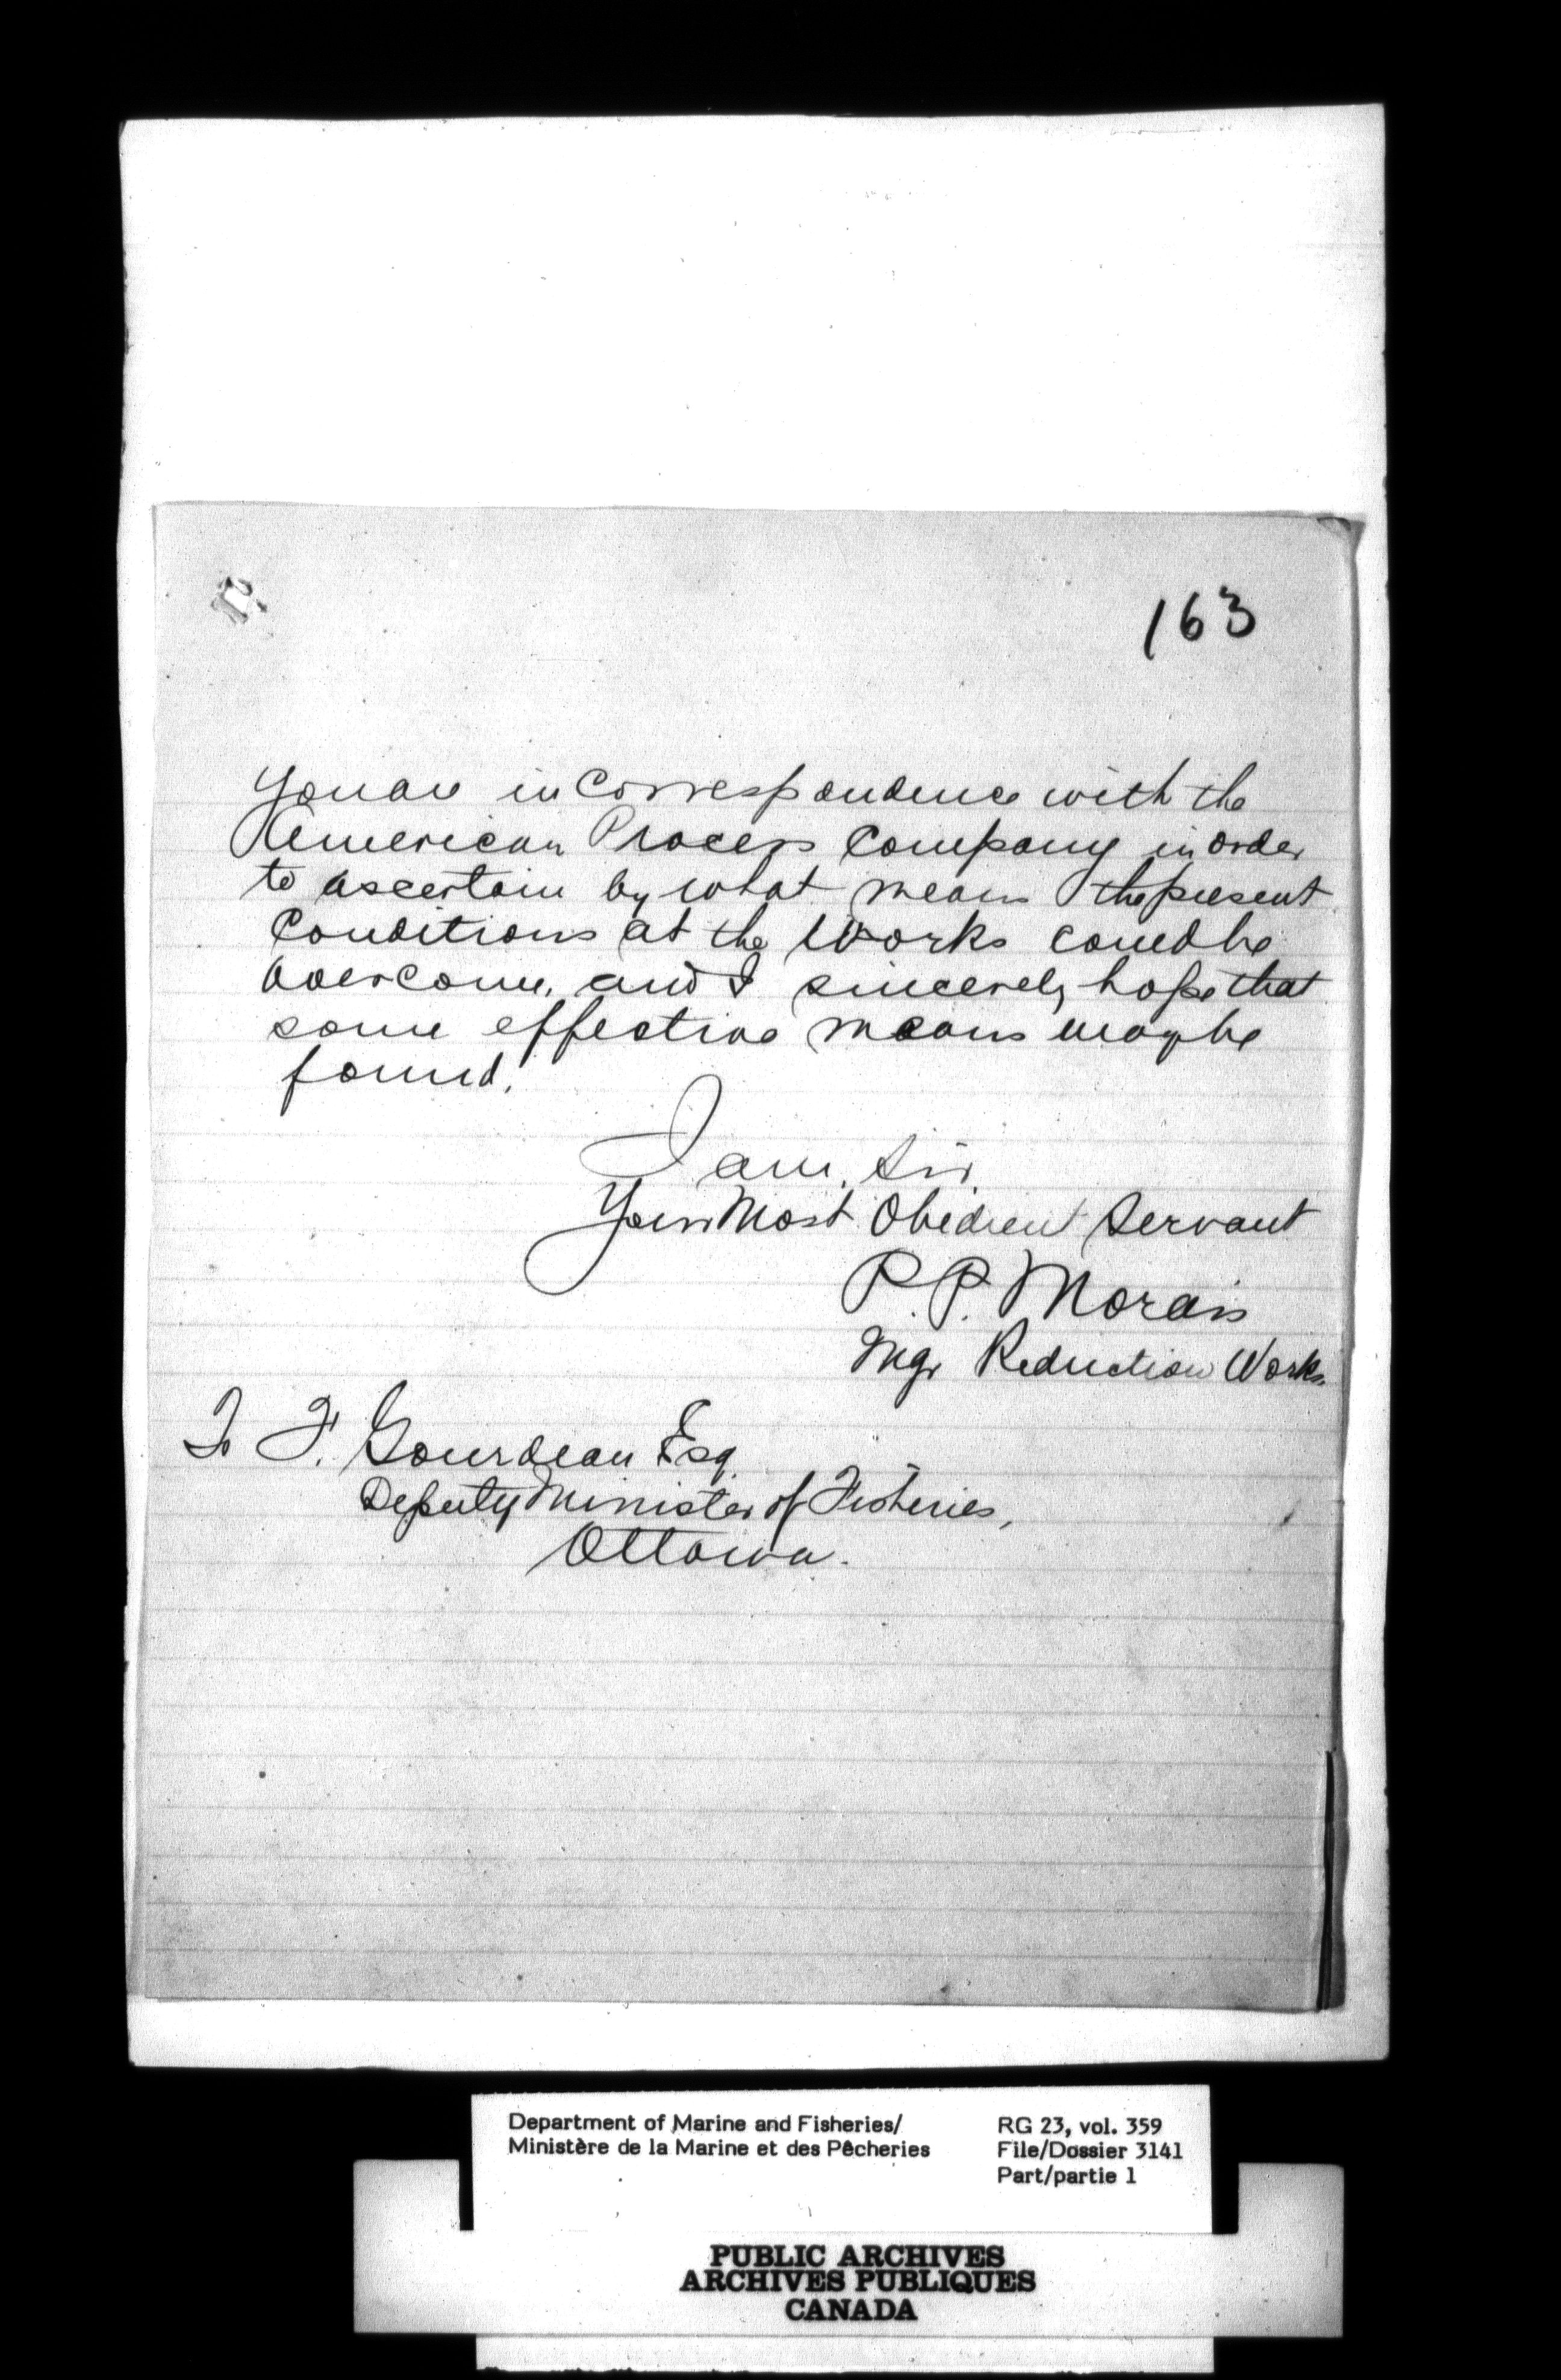 163
you are in Correspondence with the
American Process Company in order
to ascertain by what means the present
Conditions at the Works could be
overcome, and I sincerely hope that
some effective means may be
found.
I am, Sir,
Your Most Obedient Servant
P. P. Morais
Mgr Reduction Works.
To F. Gourdeau Esq.
Deputy Minister of Fisheries,
Ottawa.
Department of Marine and Fisheries/
Ministère de la Marine et des Pêcheries
RG 23, vol. 359
File/Dossier 3141
Part/partie 1
PUBLIC ARCHIVES
ARCHIVES PUBLIQUES
CANADA